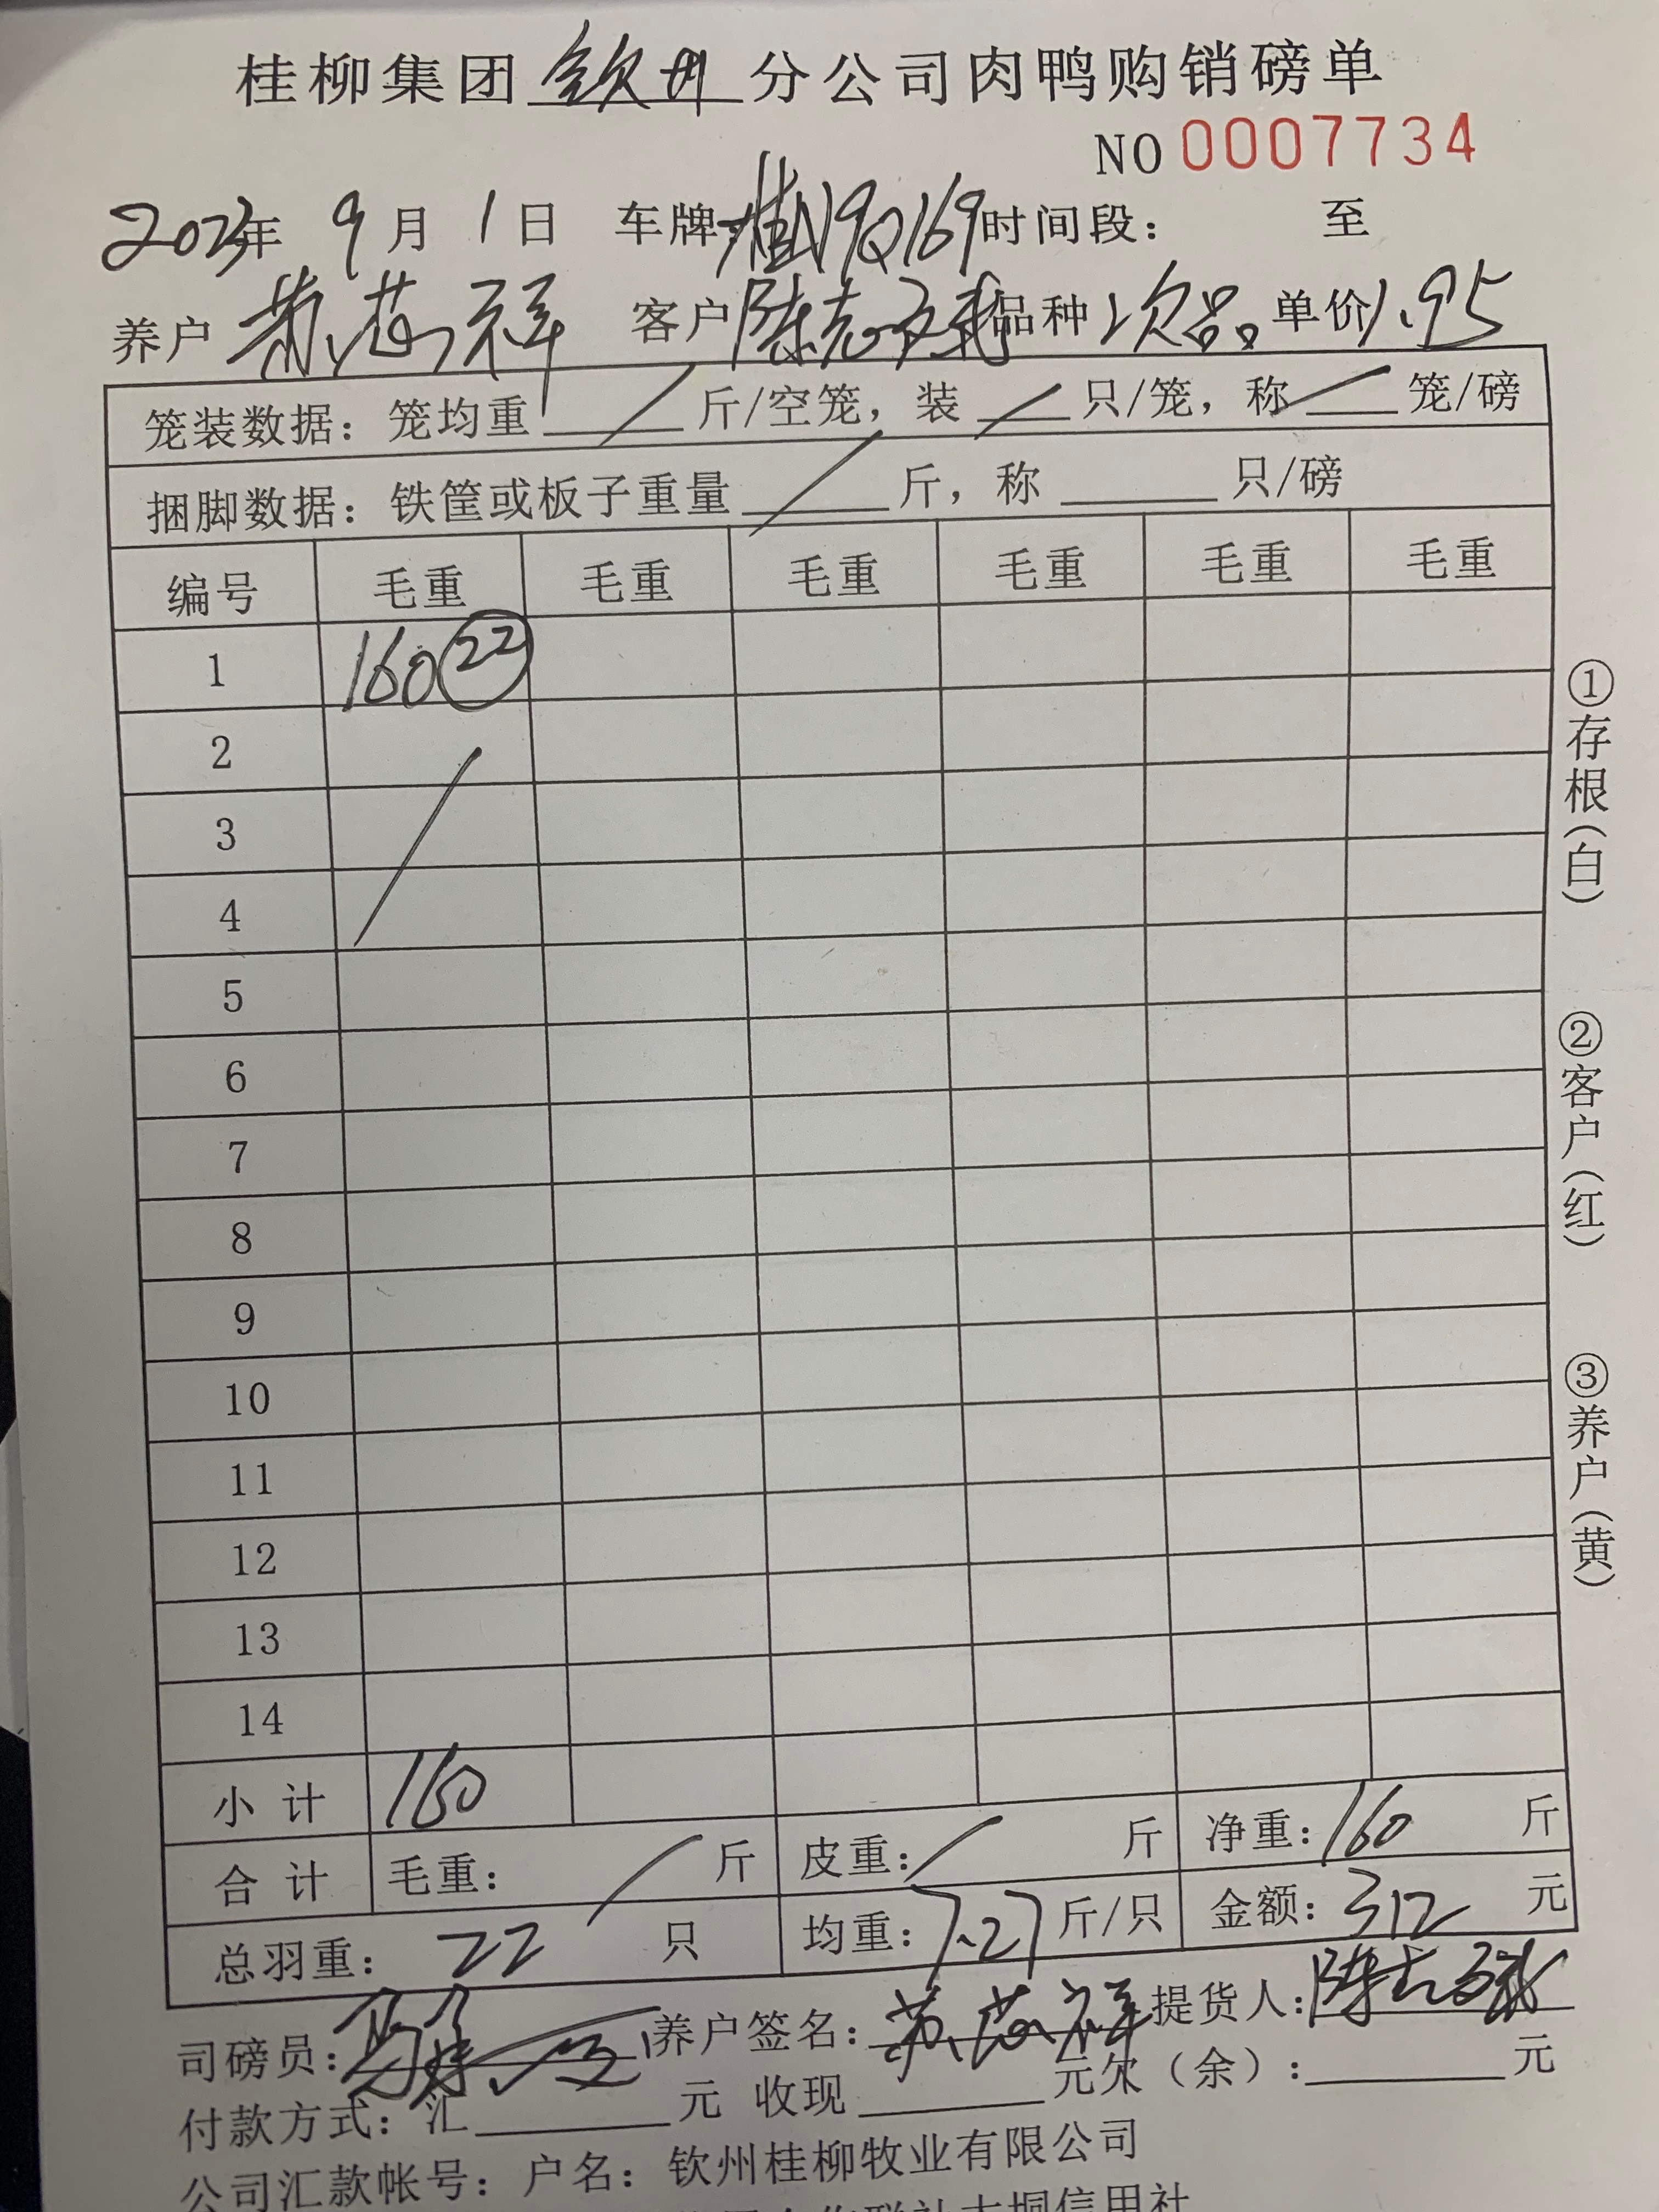 桂柳集团钦州分公司肉鸭购销磅单
NO 0007734
2023年 9月 1日 车牌:桂N9Q169 时间段： 至
养户 芯祥 客户 陈志 品种 次品 单价 1.95
笼装数据：笼均重 / 斤/空笼，装 / 只/笼，称 / 笼/磅
捆脚数据：铁筐或板子重量 / 斤，称 只/磅
编号 毛重 毛重 毛重 毛重 毛重 毛重
1 160 22
2
3
4
5
6
7
8
9
10
11
12
13
14
小 计 160
合 计 毛重： / 斤 皮重： / 斤 净重：160 斤
总羽重： 22 只 均重：7.27 斤/只 金额：312 元
司磅员： 养户签名： 芯祥 提货人：陈志
付款方式：汇 元 收现 元欠（余）： 元
公司汇款帐号：户名：钦州桂柳牧业有限公司
信用社
①存根（白）
②客户（红）
③养户（黄）